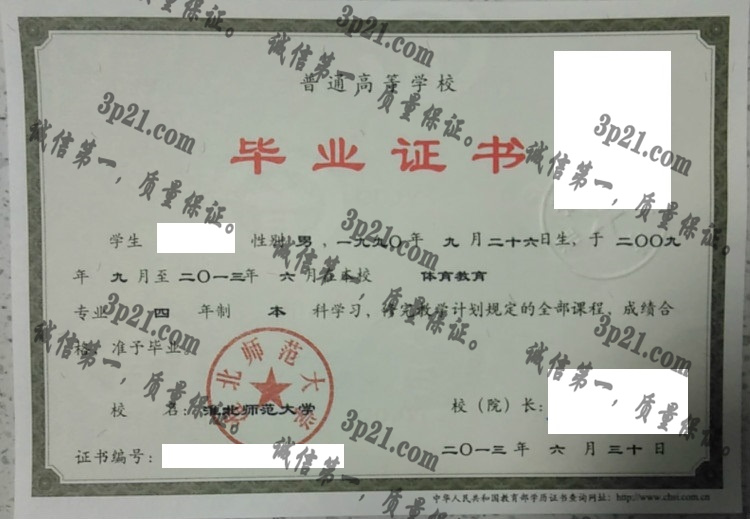 普通高等学校
毕业证书
学生 性别 男，一九九〇年 九 月二十六日生，于 二〇〇九
年 九 月至 二〇一三年 六 月在本校 体育教育
专业 四 年制 本 科学习，修完教学计划规定的全部课程，成绩合
格，准予毕业。
校 名：淮北师范大学
校（院）长：
证书编号：
二〇一三年 六 月三十日
中华人民共和国教育部学历证书查询网址：http://www.chsi.com.cn
淮北师范大学
质量保证。
3p21.com
诚信第一，质量保证。
3p21.com
诚信第一，质量保证。
3p21.com
诚信第一，质量保证。
3p21.com
诚信第一，质量保证。
3p21.com
诚信第一，质量保证。
3p21.com
诚信第一，质量保证。
3p21.com
诚信第一，质量保证。